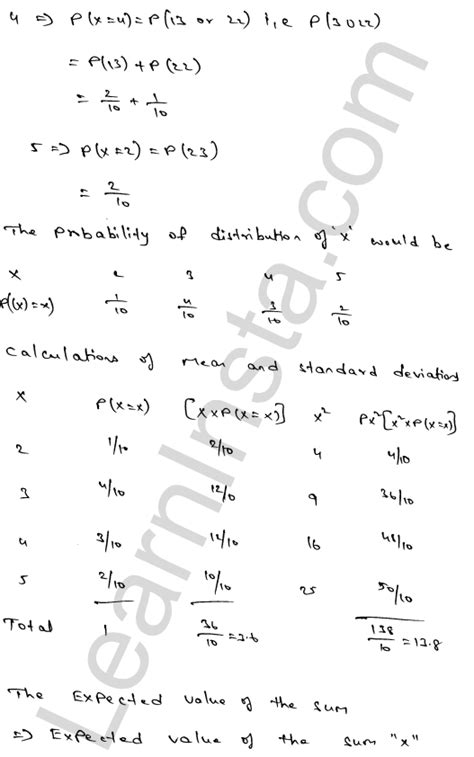 4 => P(x=4)=P(13 or 22) i,e P(13022)
= P(13)+P(22)
= 2/10 + 1/10
5 => P(x=2) = P(23)
= 2/10
The probability of distribution of 'x' would be
x 2 3 4 5
P(x)=x) 1/10 4/10 3/10 2/10
Calculations of mean and standard deviations
x P(x=x) [x×P(x=x)] x² Px²[x²×P(x=x)]
2 1/10 2/10 4 4/10
3 4/10 12/0 9 36/10
4 3/10 12/10 16 48/10
5 2/10 10/10 25 50/10
Total 1 36/10=3.6 138/10=13.8
The Expected value of the sum
=> Expected value of the sum "x"
LearnInsta.com